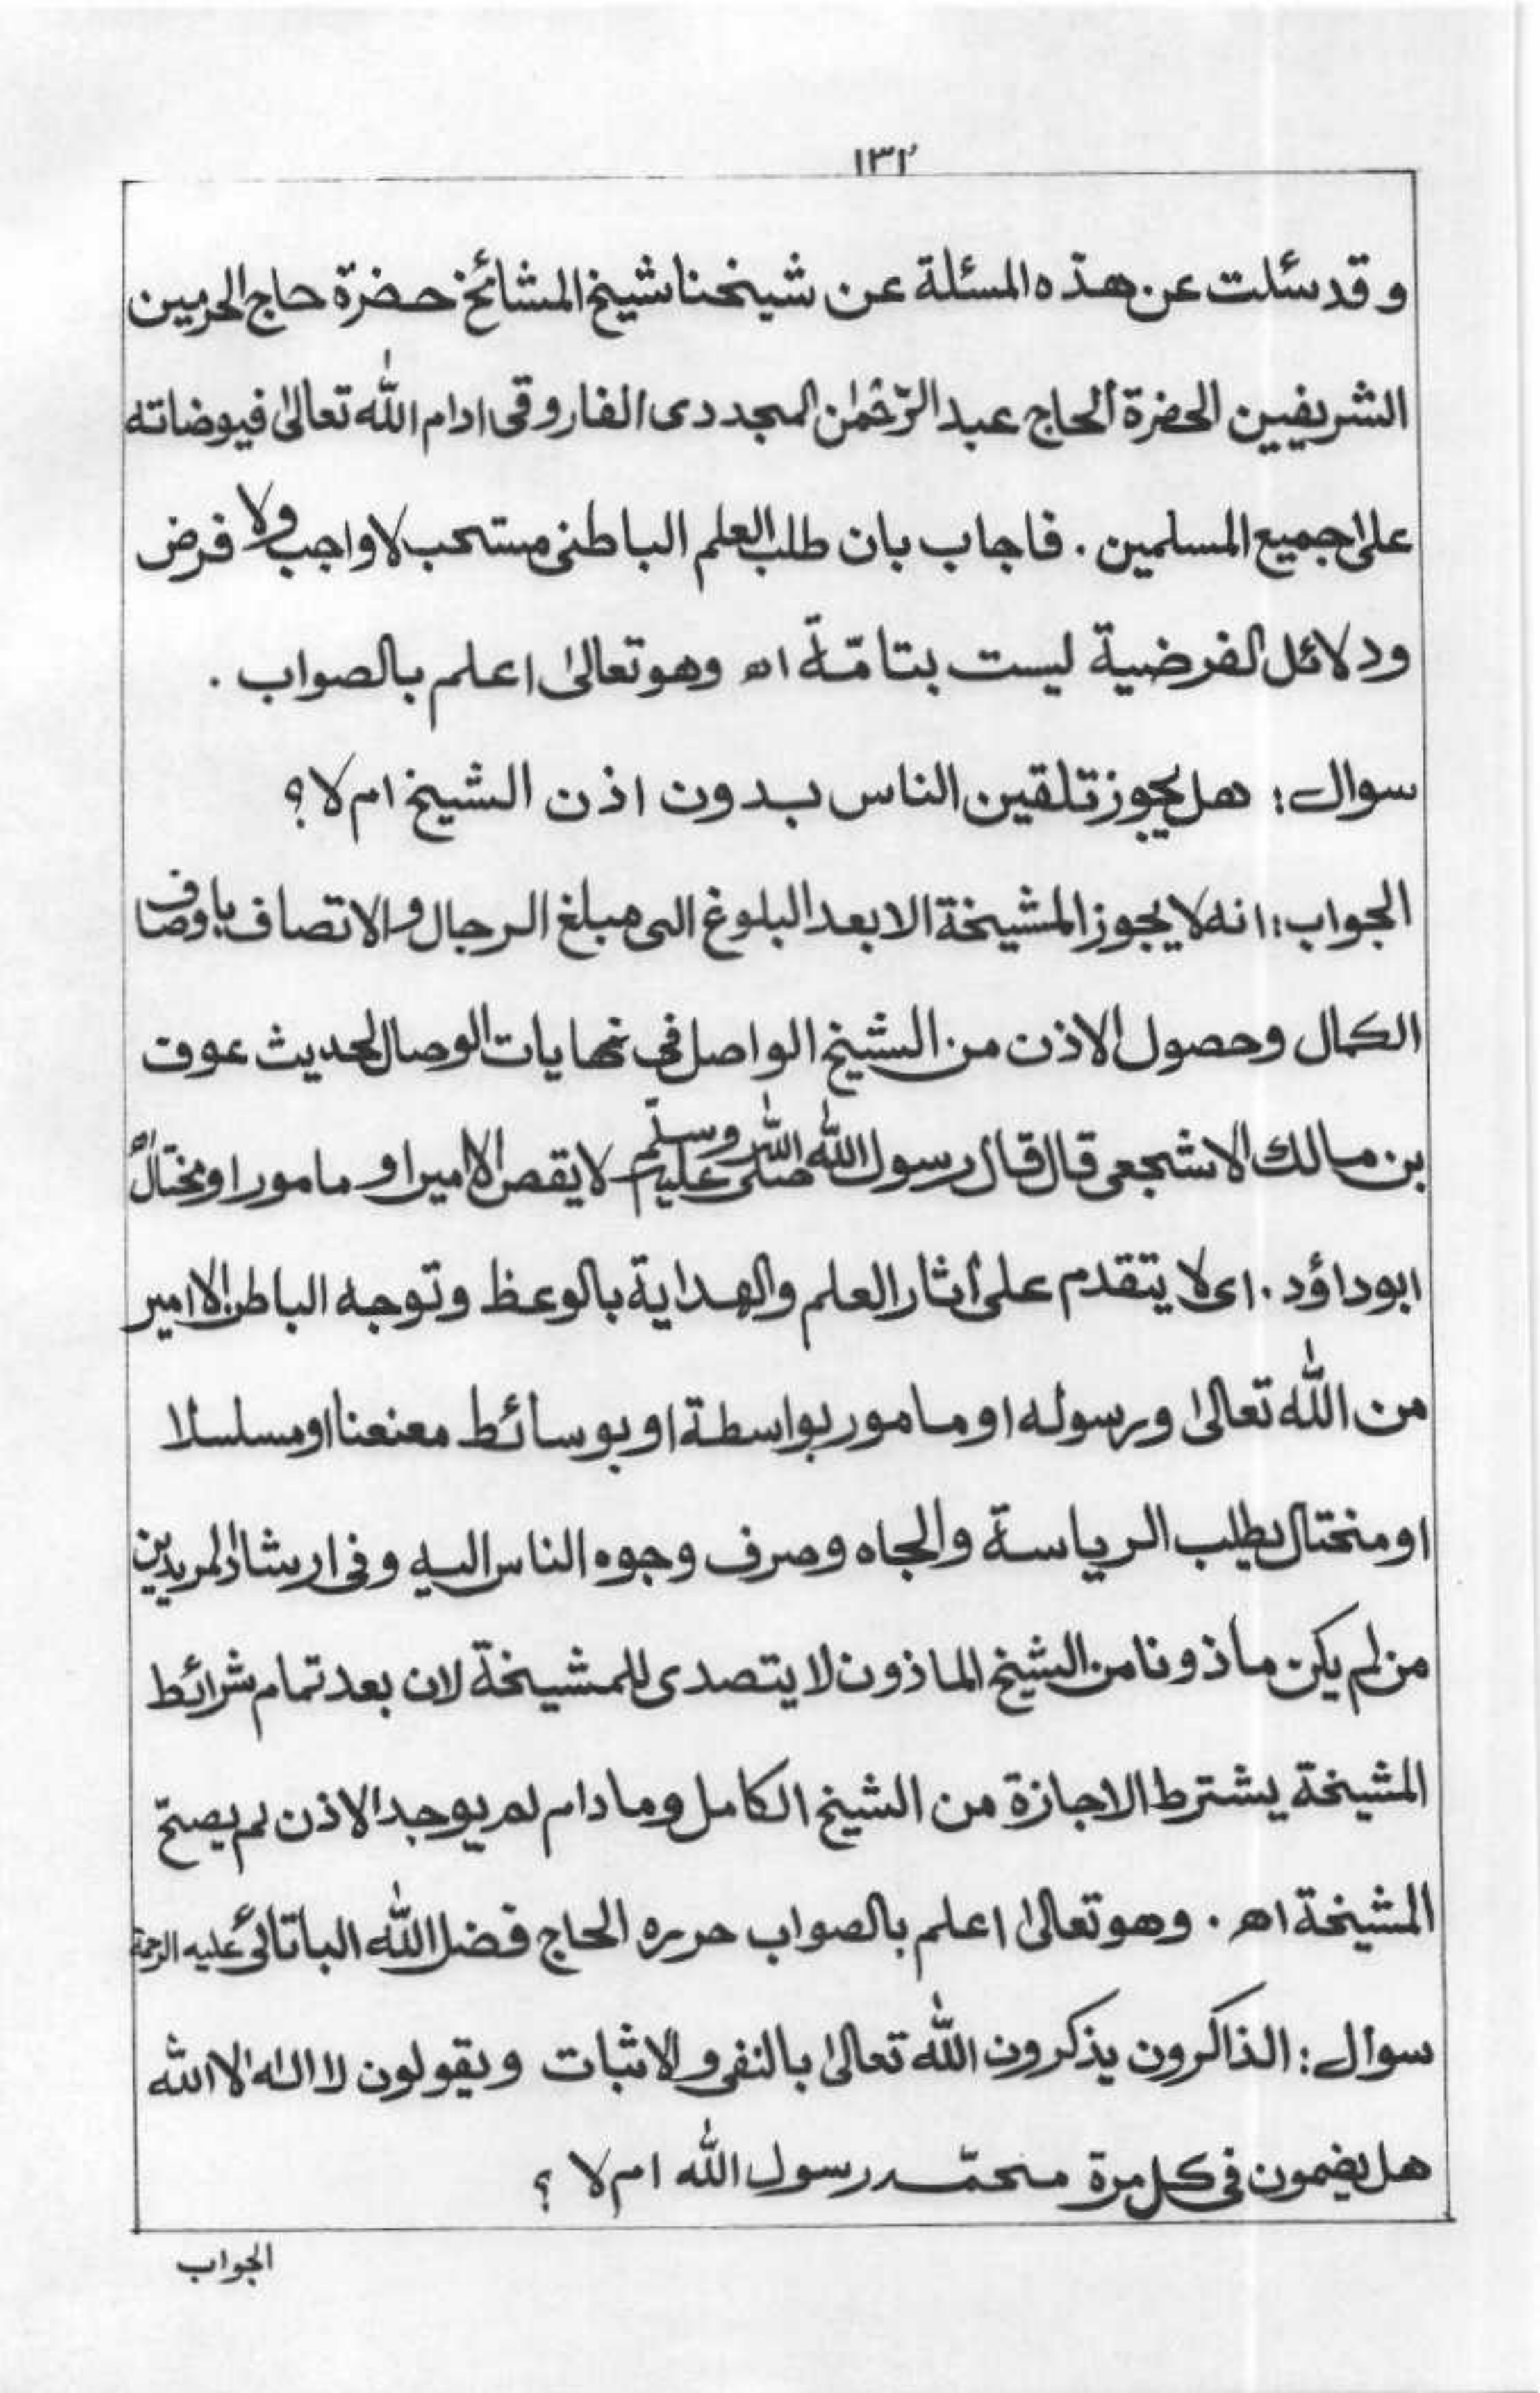 ١٣٢
و قد سئلت عن هذه المسئلة عن شيخنا شيخ المشائخ حضرة حاج الحرمين
الشريفين الحضرة الحاج عبد الرّحمٰن المجددى الفاروقى ادام اللّٰه تعالىٰ فيوضاته
علىٰ جميع المسلمين . فاجاب بان طلب العلم الباطنى مستحب لا واجب ولا فرض
ودلائل الفرضية ليست بتامّة اھ وهو تعالىٰ اعلم بالصواب .
سوال : هل يجوز تلقين الناس بدون اذن الشيخ ام لا ؟
الجواب : انه لا يجوز المشيخة الا بعد البلوغ الى مبلغ الرجال و الاتصاف باوصاف
الكمال و حصول الاذن من الشيخ الواصل فى نهايات الوصال لحديث عوف
بن مالك الاشجعى قال قال رسول اللّٰه صلى اللّٰه عليه وسلّم لا يقص الا امير او مامور او مختال رواه
ابوداؤد . اى لا يتقدم على أثار العلم والهداية بالوعظ و توجه الباطن الا امير
من اللّٰه تعالىٰ و رسوله او مامور بواسطة او بوسائط معنعنا او مسلسلا
او مختال يطلب الرياسة والجاه و صرف وجوه الناس اليه و فى ارشاد المريدين
من لم يكن ماذونا من الشيخ الماذون لا يتصدى للمشيخة لان بعد تمام شرائط
المشيخة يشترط الاجازة من الشيخ الكامل و مادام لم يوجد الاذن لم يصحّ
المشيخة اھ . وهو تعالىٰ اعلم بالصواب حرره الحاج فضل اللّٰه الباتائى عليه الرحمة
سوال : الذاكرون يذكرون اللّٰه تعالىٰ بالنفى و الاثبات ويقولون لا اله الا اللّٰه
هل يضمون فى كل مرة محمّد رسول اللّٰه ام لا ؟
الجواب